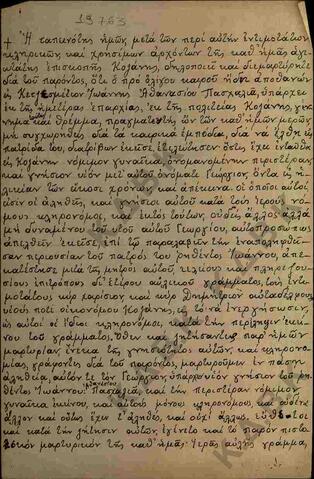 19763
+ Ἡ ταπεινότης ἡμῶν μετὰ τῶν περὶ αὐτὴν ἐντιμοτάτων
κληρικῶν, καὶ χρησίμων ἀρχόντων τῆς καθ' ἡμᾶς ἁγιω-
τάτης ἐπισκοπῆς Κοζάνης, δηλοποιεῖ καὶ διαμαρτύρεται
διὰ τοῦ παρόντος, ὅτι ὁ πρὸ ὀλίγου καιροῦ ἤδη ἀποθανὼν
εἰς Ἰωάννης Ἀθανασίου Πασχαλῆ, ὑπάρχει
ἐκ τῆς ἡμετέρας ἐπαρχίας, ἐκ τῆς πολιτείας Κοζάνης, γέν-
νημα καὶ θρέμμα, πραγματευτὴς ὤν τῶν καθ' ἡμᾶς μερῶν
μὴ συγχωρηθεὶς διὰ τὰ καιρικὰ ἐμπόδια, διὰ νὰ ἔλθῃ εἰς
πατρίδα του, διατρίβων ἐκεῖσε, ἐτελεύτησεν ὅστις ἔχει ἐνταῦθα
εἰς Κοζάνην νόμιμον γυναῖκα, ὀνομαζομένην περιστέραν,
καὶ γνήσιον υἱὸν μετ' αὐτοῦ ὀνόματι Γεώργιον, ὄντα εἰς ἡ-
λικίαν τῶν εἴκοσι χρονῶν, καὶ ἐπέκεινα. οἱ ὁποῖοι αὐτοὶ
εἰσὶν οἱ ἀληθεῖς, καὶ γνήσιοι αὐτοῦ κατὰ τοὺς ἱεροὺς νό-
μους κληρονόμοι, καὶ ἐκτὸς τούτων, οὐδεὶς ἄλλος ἀλλὰ
μὴ δυναμένου τοῦ υἱοῦ αὐτοῦ Γεωργίου, αὐτοπροσώπως
ἀπελθεῖν ἐκεῖσε, ἐπὶ τῷ παραλαβεῖν τὴν ἐναπολειφθεῖ-
σαν περιουσίαν τοῦ πατρός του ῥηθέντος Ἰωάννου, ἀπε-
κατέστησε μετὰ τῆς μητρὸς αὐτοῦ, τελείους καὶ πληρεξου-
σίους ἐπιτρόπους δι' ἑτέρου αὐτῶν γράμματος, τοὺς ἐντι-
μοτάτους κὺρ μαρίσιον, καὶ κὺρ Δημήτριον αὐταδέλφους
υἱοὺς ποτὲ οἰκονόμου Κοζάνης, εἰς τὸ νὰ ἐνεργήσωσιν,
ὡς αὐτοὶ οἱ ἴδιοι κληρονόμοι, κατὰ τὴν περίληψιν ἐκεί-
νου τοῦ γράμματος, Ὅθεν καὶ ζητήσαντες παρ' ἡμῶν
μαρτυρίαν, ἕνεκα τῆς γνησιότητος αὐτῶν, καὶ κληρονο-
μίας, γράφοντες διὰ τοῦ παρόντος, μαρτυροῦμεν ἐν πάσῃ
ἀληθείᾳ, αὐτόν τε τὸν Γεώργιον, ὑπάρχειν υἱὸν γνήσιον τοῦ
ῥηθέντος Ἰωάννου Ἀθανασίου Πασχαλῆ, καὶ τὴν περιστέραν νόμιμον
γυναῖκα ἐκείνου, καὶ αὐτοὺς μόνους κληρονόμους, καὶ οὐδένα
ἄλλον καὶ οὕτως ἔχει τ' ἀληθές, καὶ οὐχὶ ἄλλως.
καὶ κατὰ τὴν ζήτησιν αὐτῶν, ἐγένετο καὶ τὸ παρὸν πιστω-
τικὸν μαρτυρικὸν τῆς καθ' ἡμᾶς ἱερᾶς αὐλῆς γράμμα,